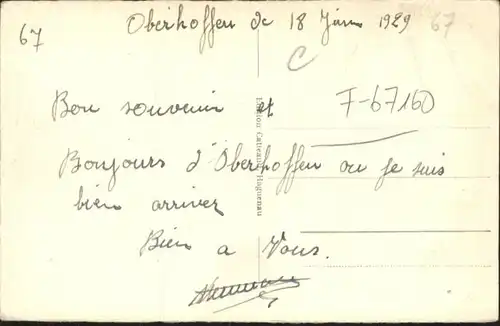 67 Oberhoffen de 18 Juin 1929 67
C
Bon souvenir et F-67160
Bonjours d'Oberhoffen ou je suis
bien arriver
Bien a Vous.
Edition Catteau, Haguenau